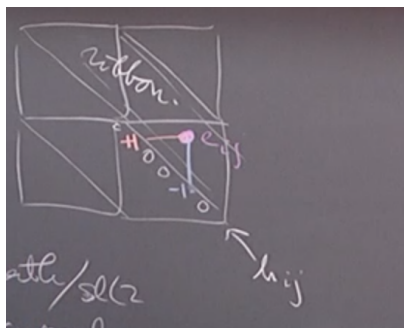 ribbon.
+1
e_ij
0
0
-1
0
h_ij
/sl(2